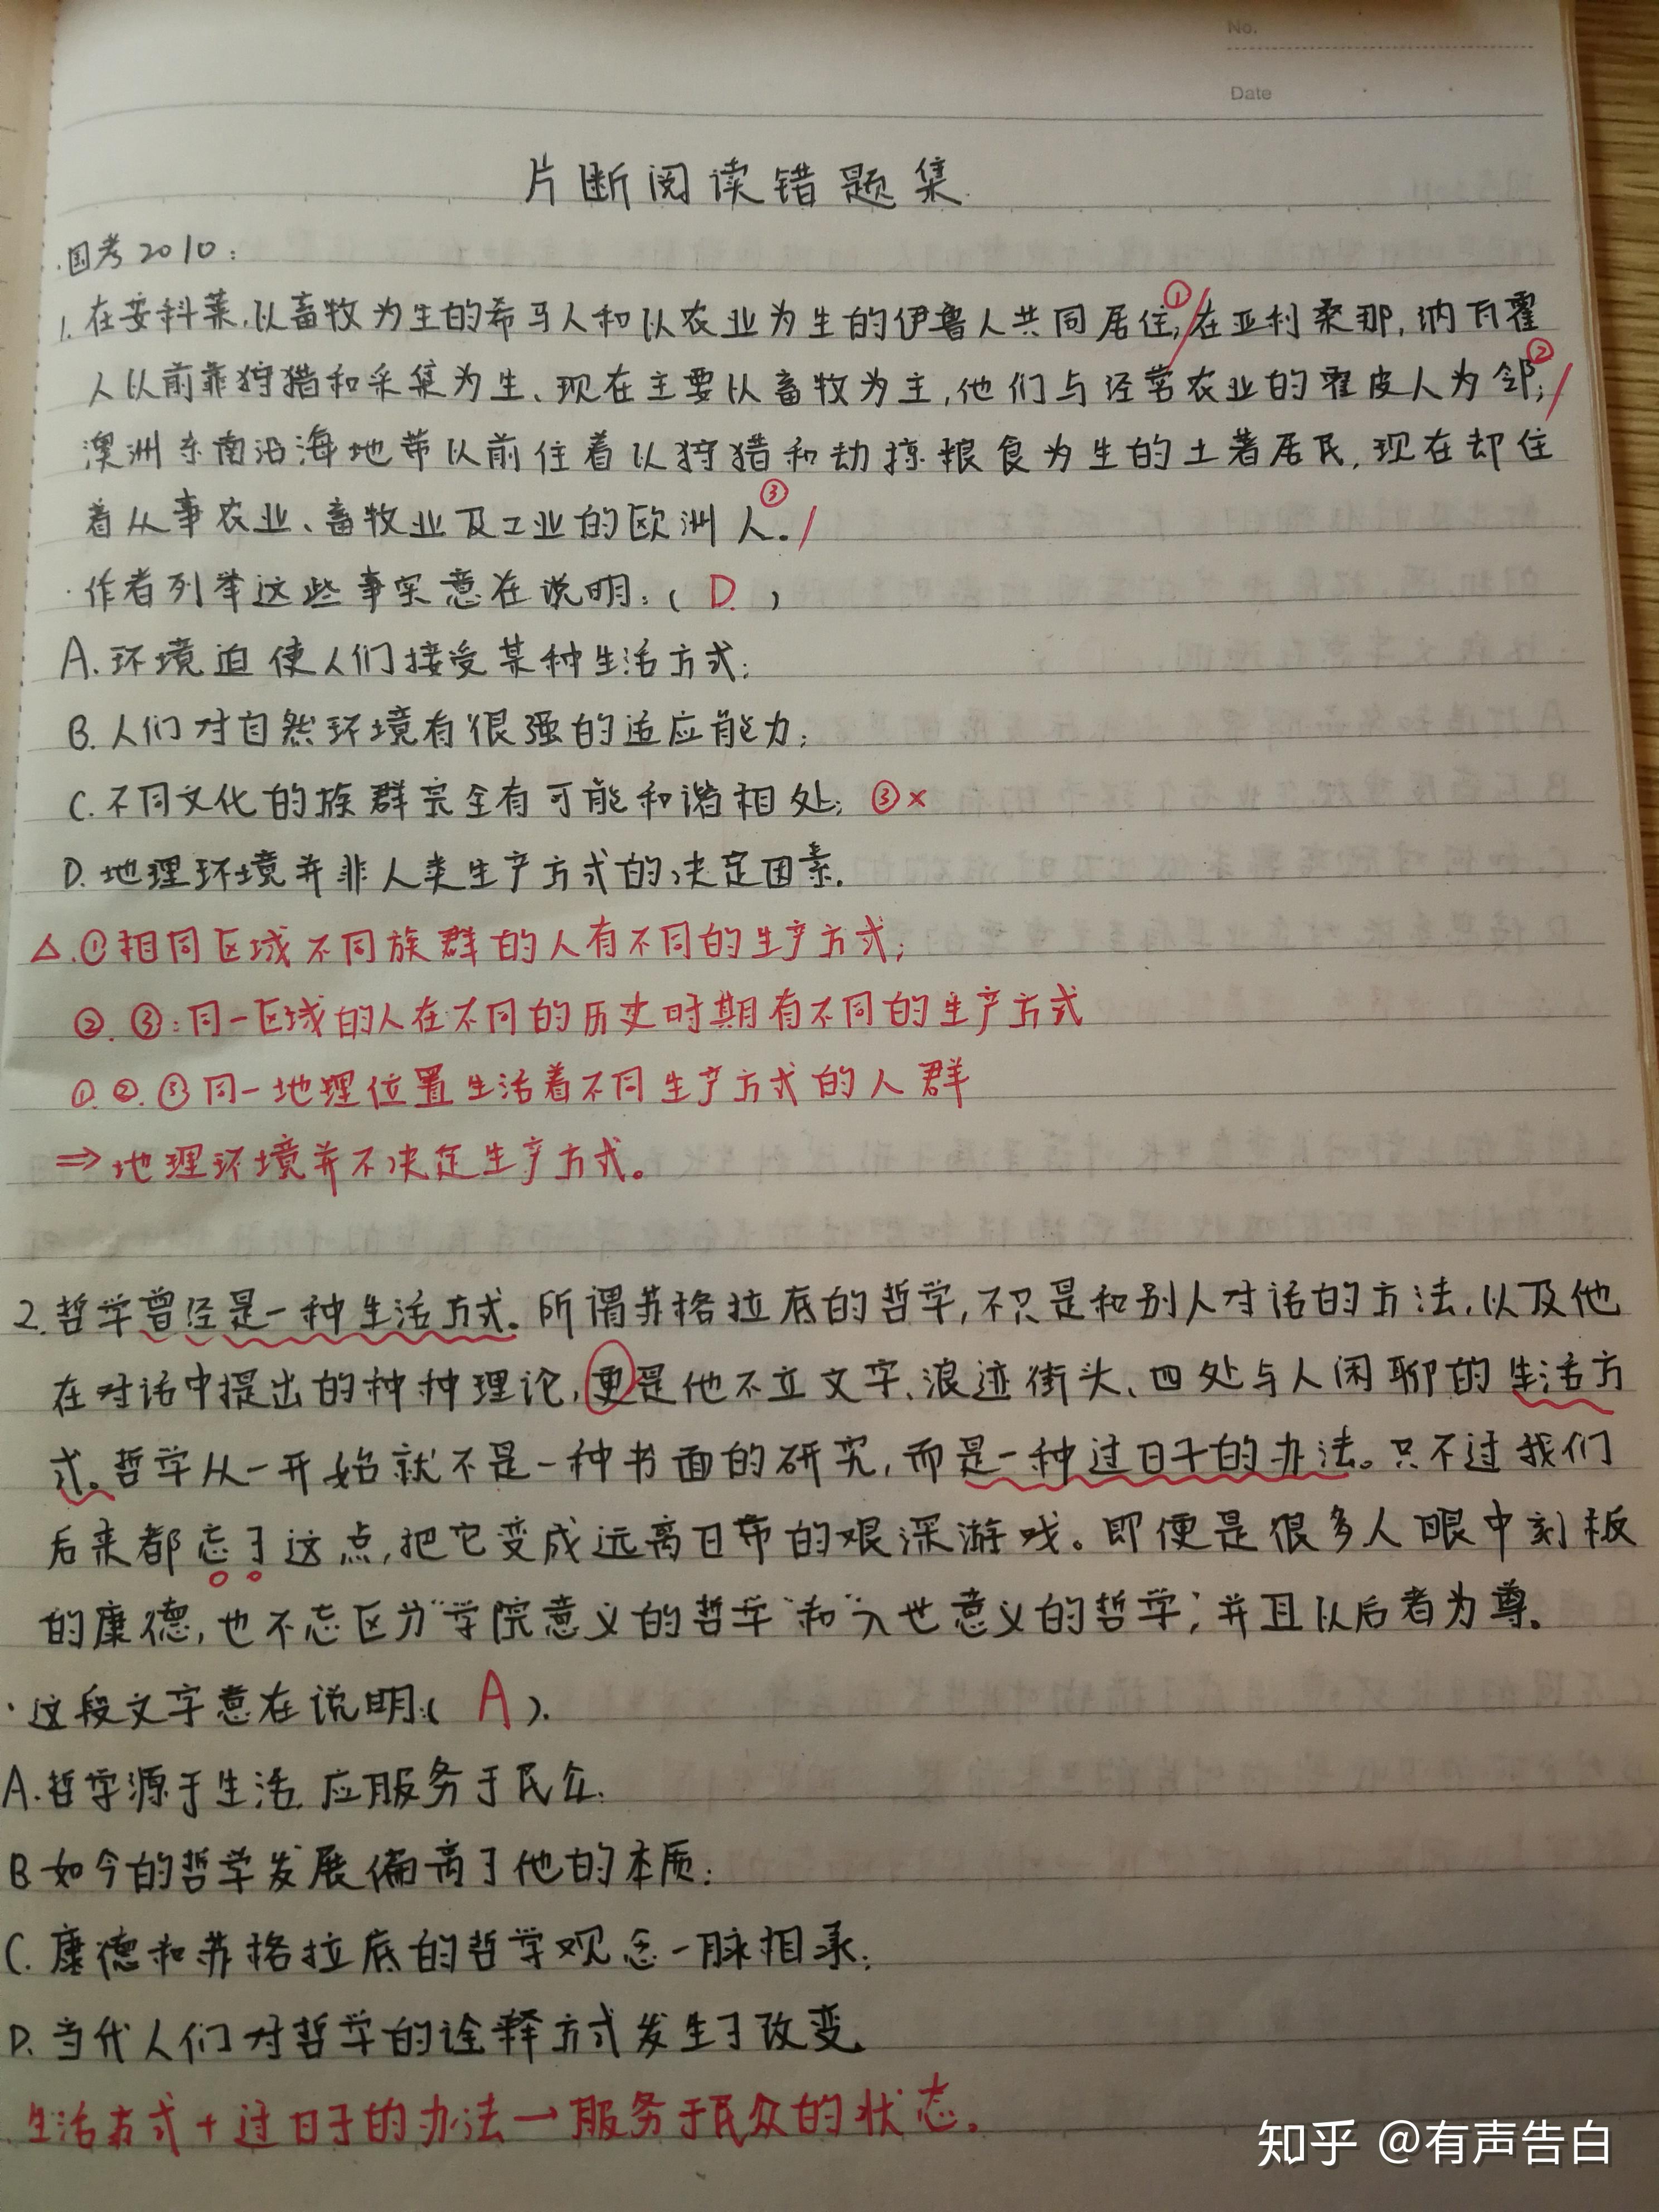 No.
Date
片断阅读错题集
.国考2010:
1.在安科莱,以畜牧为生的希马人和以农业为生的伊鲁人共同居住;①在亚利桑那,纳瓦霍
人以前靠狩猎和采集为生、现在主要以畜牧为主,他们与经营农业的霍皮人为邻;②
澳洲东南沿海地带以前住着以狩猎和劫掠粮食为生的土著居民,现在却住
着从事农业、畜牧业及工业的欧洲人。③
·作者列举这些事实意在说明:( D )
A.环境迫使人们接受某种生活方式;
B.人们对自然环境有很强的适应能力;
C.不同文化的族群完全有可能和谐相处; ③×
D.地理环境并非人类生产方式的决定因素.
△.①相同区域不同族群的人有不同的生产方式;
②.③:同一区域的人在不同的历史时期有不同的生产方式
①.②.③同一地理位置生活着不同生产方式的人群
⇒地理环境并不决定生产方式。
2.哲学曾经是一种生活方式。所谓苏格拉底的哲学,不只是和别人对话的方法,以及他
在对话中提出的种种理论,更是他不立文字、浪迹街头、四处与人闲聊的生活方
式。哲学从一开始就不是一种书面的研究,而是一种过日子的办法。只不过我们
后来都忘了这点,把它变成远离日常的艰深游戏。即便是很多人眼中刻板
的康德,也不忘区分“学院意义的哲学”和“入世意义的哲学”,并且以后者为尊。
·这段文字意在说明:( A ).
A.哲学源于生活,应服务于民众.
B.如今的哲学发展偏离了他的本质;
C.康德和苏格拉底的哲学观念一脉相承;
D.当代人们对哲学的诠释方式发生了改变.
.生活方式+过日子的办法→服务于民众的状态。
知乎 @有声告白